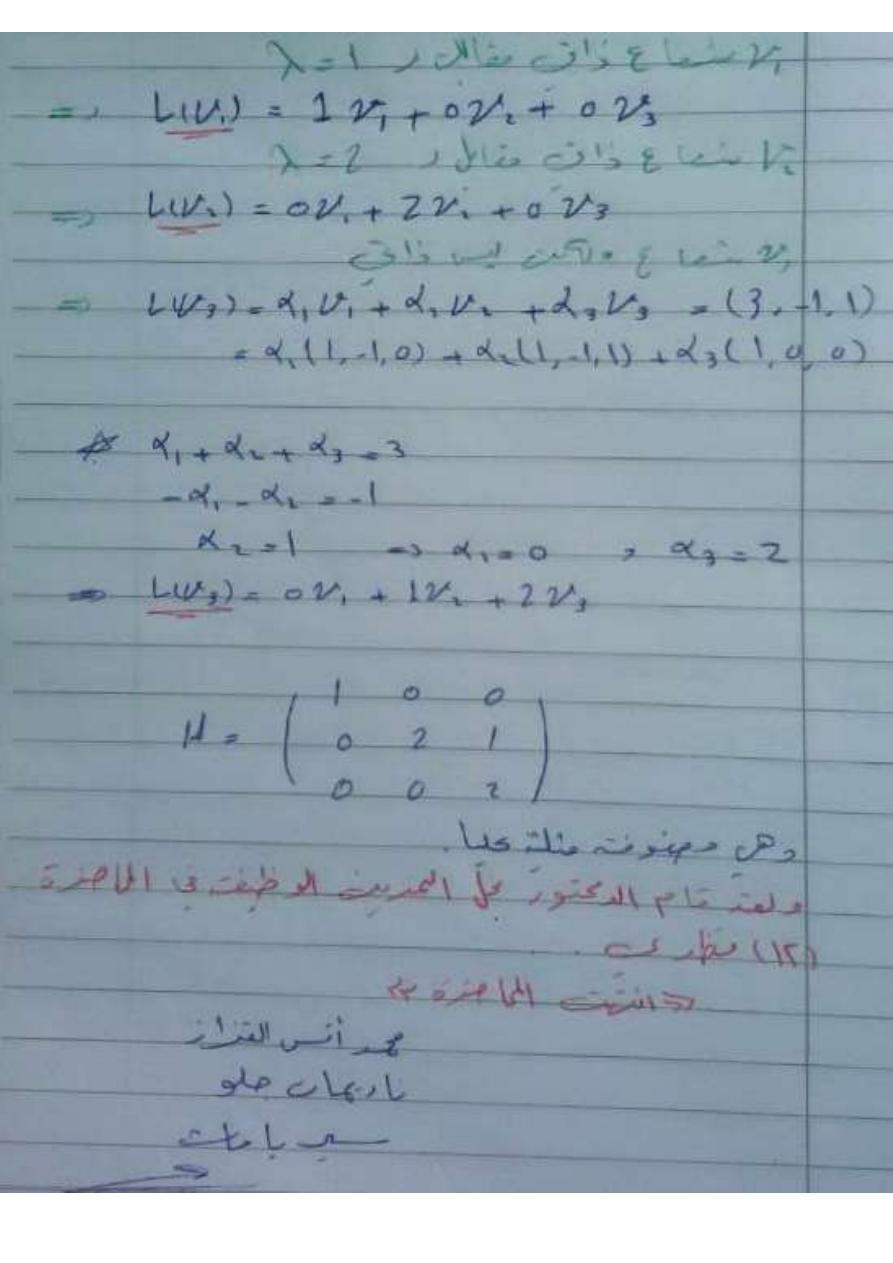 v₁ شعاع ذاتي مقابل لـ λ = 1
=> L(v₁) = 1 v₁ + 0v₂ + 0v₃
v₂ شعاع ذاتي مقابل لـ λ = 2
=> L(v₂) = 0v₁ + 2v₂ + 0v₃
v₃ شعاع ولكن ليس ذاتي
=> L(v₃) = α₁v₁ + α₂v₂ + α₃v₃ = (3, -1, 1)
= α₁(1, -1, 0) + α₂(1, -1, 1) + α₃(1, 0, 0)
* α₁ + α₂ + α₃ = 3
-α₁ - α₂ = -1
α₂ = 1 => α₁ = 0 , α₃ = 2
=> L(v₃) = 0v₁ + 1v₂ + 2v₃
1 0 0
M = ( 0 2 1 )
0 0 2
وهي مصفوفة مثلثية عليا.
ولقد قام الدكتور بحلّ التمرين الوظيفة في المحاضرة
(١٢) نظري.
انتهت المحاضرة
محمد أنس القزاز
ناريمان حلو